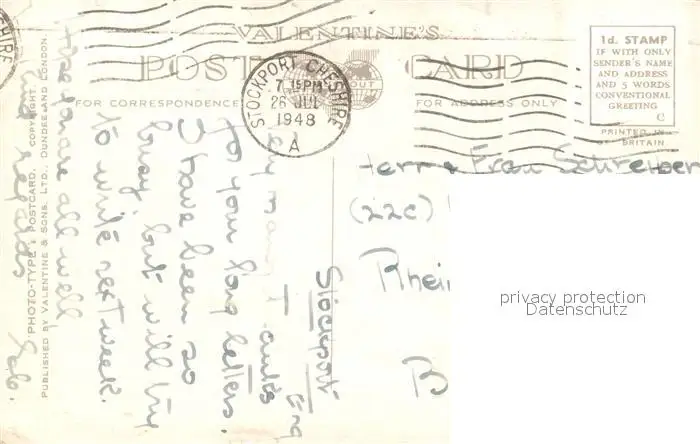 VALENTINE'S
POST CARD
FOR CORRESPONDENCE
FOR ADDRESS ONLY
STOCKPORT CHESHIRE
7 15 PM
26 JUL
1948
A
1d. STAMP
IF WITH ONLY
SENDER'S NAME
AND ADDRESS
AND 5 WORDS
CONVENTIONAL
GREETING
C
PRINTED IN
BRITAIN
PHOTO-TYPE POSTCARD. COPYRIGHT.
PUBLISHED BY VALENTINE & SONS, LTD., DUNDEE AND LONDON
Stockport
Eng
many
for your long letters.
I have been so
busy, but will try
to write next week.
you are all well
and regards
Herr & Frau Schreiber
(22c)
Rhein
B
privacy protection
Datenschutz